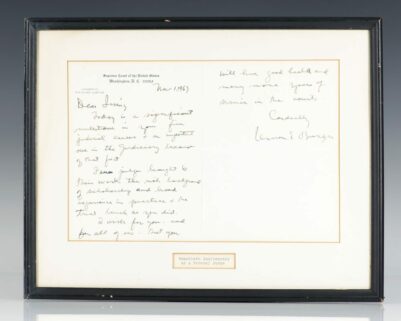 Supreme Court of the United States
Washington, D. C. 20543
Nov 1, 1969
Dear Irving
Today is a significant
milestone in your fine
judicial career &
one in the Judiciary
of that fact
Few judges brought to
their work the rich background
of scholarship and broad
experience in practice & the
trial bench as you did.
I wish for you - and
for all of us - that you
will have good health and
many more years of
service in the courts
Cordially
Warren E Burger
Twentieth Anniversary
as a Federal Judge